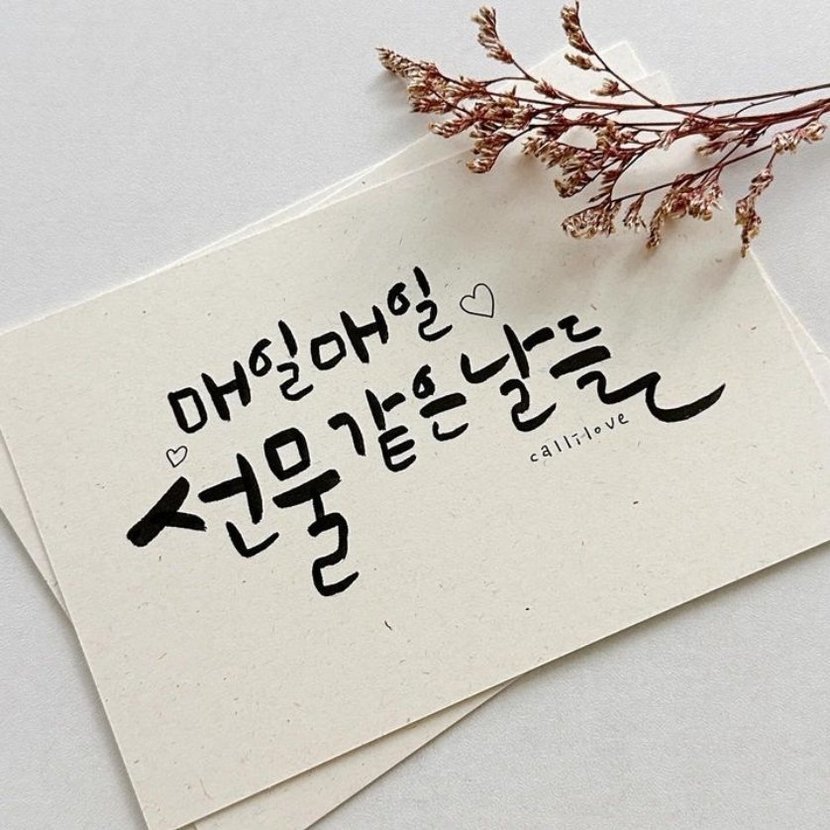 매일매일
선물같은날들
callilove